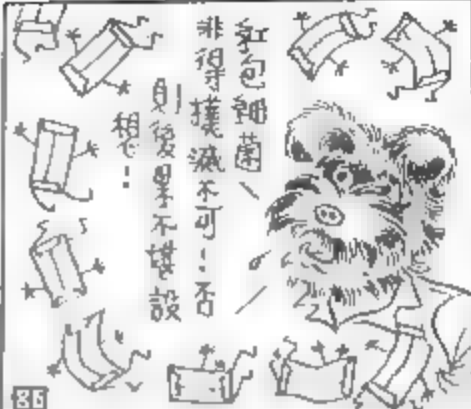 紅包細菌
非得撲滅不可！否
則後果不堪設
想！
86